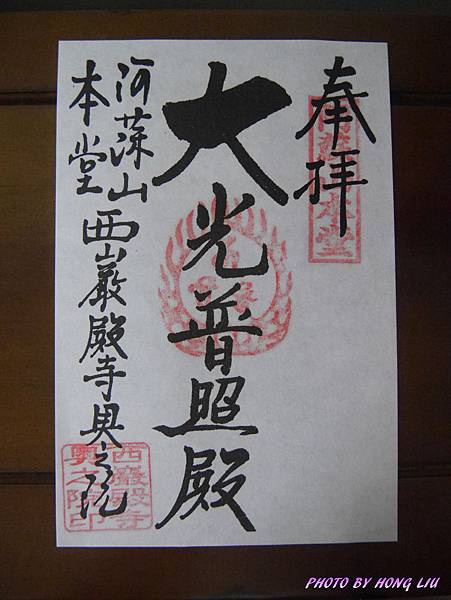 奉拝
大光普照殿
阿蘇山
本堂
西巌殿寺奥之院
西巌殿寺
奥之院印
PHOTO BY HONG LIU